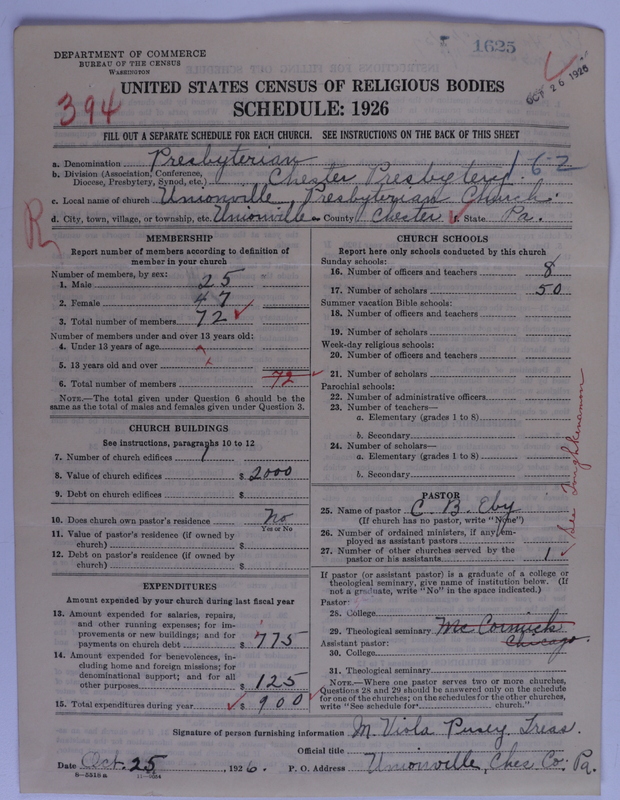 1625
OCT 26 1926
DEPARTMENT OF COMMERCE
BUREAU OF THE CENSUS
WASHINGTON
UNITED STATES CENSUS OF RELIGIOUS BODIES
394
SCHEDULE: 1926
FILL OUT A SEPARATE SCHEDULE FOR EACH CHURCH. SEE INSTRUCTIONS ON THE BACK OF THIS SHEET
a. Denomination Presbyterian
b. Division (Association, Conference, Diocese, Presbytery, Synod, etc.) Chester Presbytery. 162
c. Local name of church Unionville Presbyterian Church.
d. City, town, village, or township, etc. Unionville e. County Chester f. State Pa.
R
MEMBERSHIP
Report number of members according to definition of
member in your church
Number of members, by sex:
1. Male 25
2. Female 47
3. Total number of members 72
Number of members under and over 13 years old:
4. Under 13 years of age
5. 13 years old and over
6. Total number of members 72
NOTE.—The total given under Question 6 should be the
same as the total of males and females given under Question 3.
CHURCH BUILDINGS
See instructions, paragraphs 10 to 12
7. Number of church edifices 1
8. Value of church edifices $ 2000
9. Debt on church edifices $
10. Does church own pastor's residence No
Yes or No
11. Value of pastor's residence (if owned by
church) $
12. Debt on pastor's residence (if owned by
church) $
EXPENDITURES
Amount expended by your church during last fiscal year
13. Amount expended for salaries, repairs,
and other running expenses; for im-
provements or new buildings; and for
payments on church debt $ 775
14. Amount expended for benevolences, in-
cluding home and foreign missions; for
denominational support; and for all
other purposes $ 125
15. Total expenditures during year $ 900
CHURCH SCHOOLS
Report here only schools conducted by this church
Sunday schools:
16. Number of officers and teachers 8
17. Number of scholars 50
Summer vacation Bible schools:
18. Number of officers and teachers
19. Number of scholars
Week-day religious schools:
20. Number of officers and teachers
21. Number of scholars
Parochial schools:
22. Number of administrative officers
23. Number of teachers—
a. Elementary (grades 1 to 8)
b. Secondary
24. Number of scholars—
a. Elementary (grades 1 to 8)
b. Secondary
PASTOR
25. Name of pastor C. B. Eby
(If church has no pastor, write "None")
26. Number of ordained ministers, if any, em-
ployed as assistant pastors
27. Number of other churches served by the
pastor or his assistants 1
See
If pastor (or assistant pastor) is a graduate of a college or
theological seminary, give name of institution below. (If
not a graduate, write "No" in the space indicated.)
Pastor:
28. College
29. Theological seminary McCormick
Assistant pastor: Chicago.
30. College
31. Theological seminary
NOTE.—Where one pastor serves two or more churches,
Questions 28 and 29 should be answered only on the schedule
for one of the churches; on the schedules for the other churches,
write "See schedule for church."
Signature of person furnishing information M. Viola Pusey Treas.
Official title
Date Oct. 25, 1926. P. O. Address Unionville, Ches. Co. Pa.
8—5518a